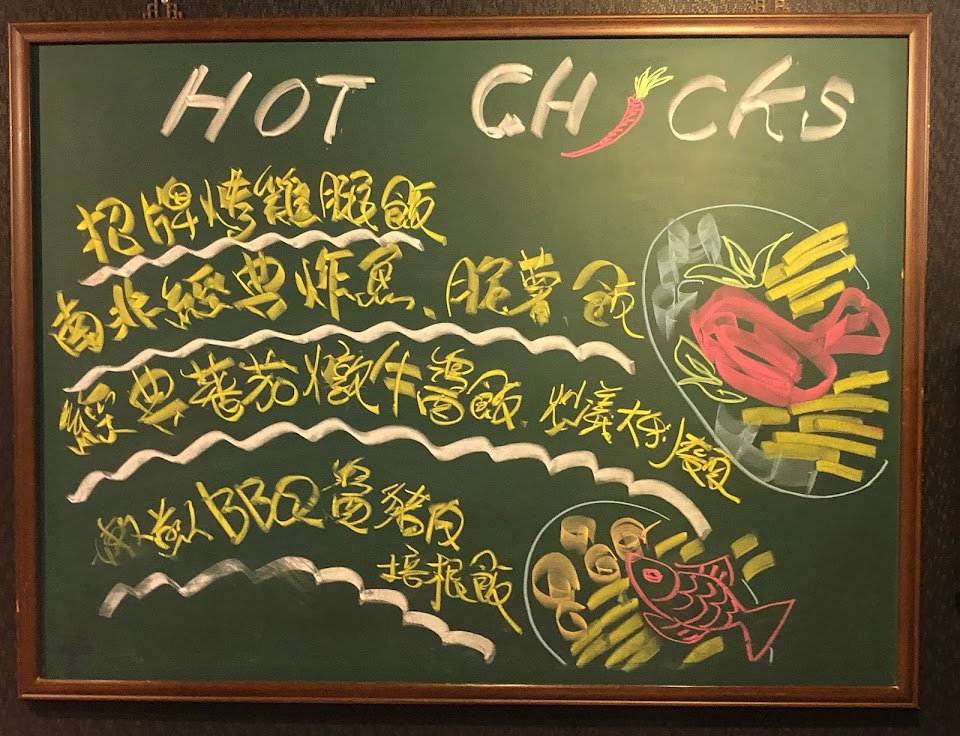 HOT CHICKS
招牌烤雞腿飯
南非經典炸魚、脆薯、飯
經典蕃茄燉牛醬飯、炒義大利麵
BBQ醬豬肉
培根飯